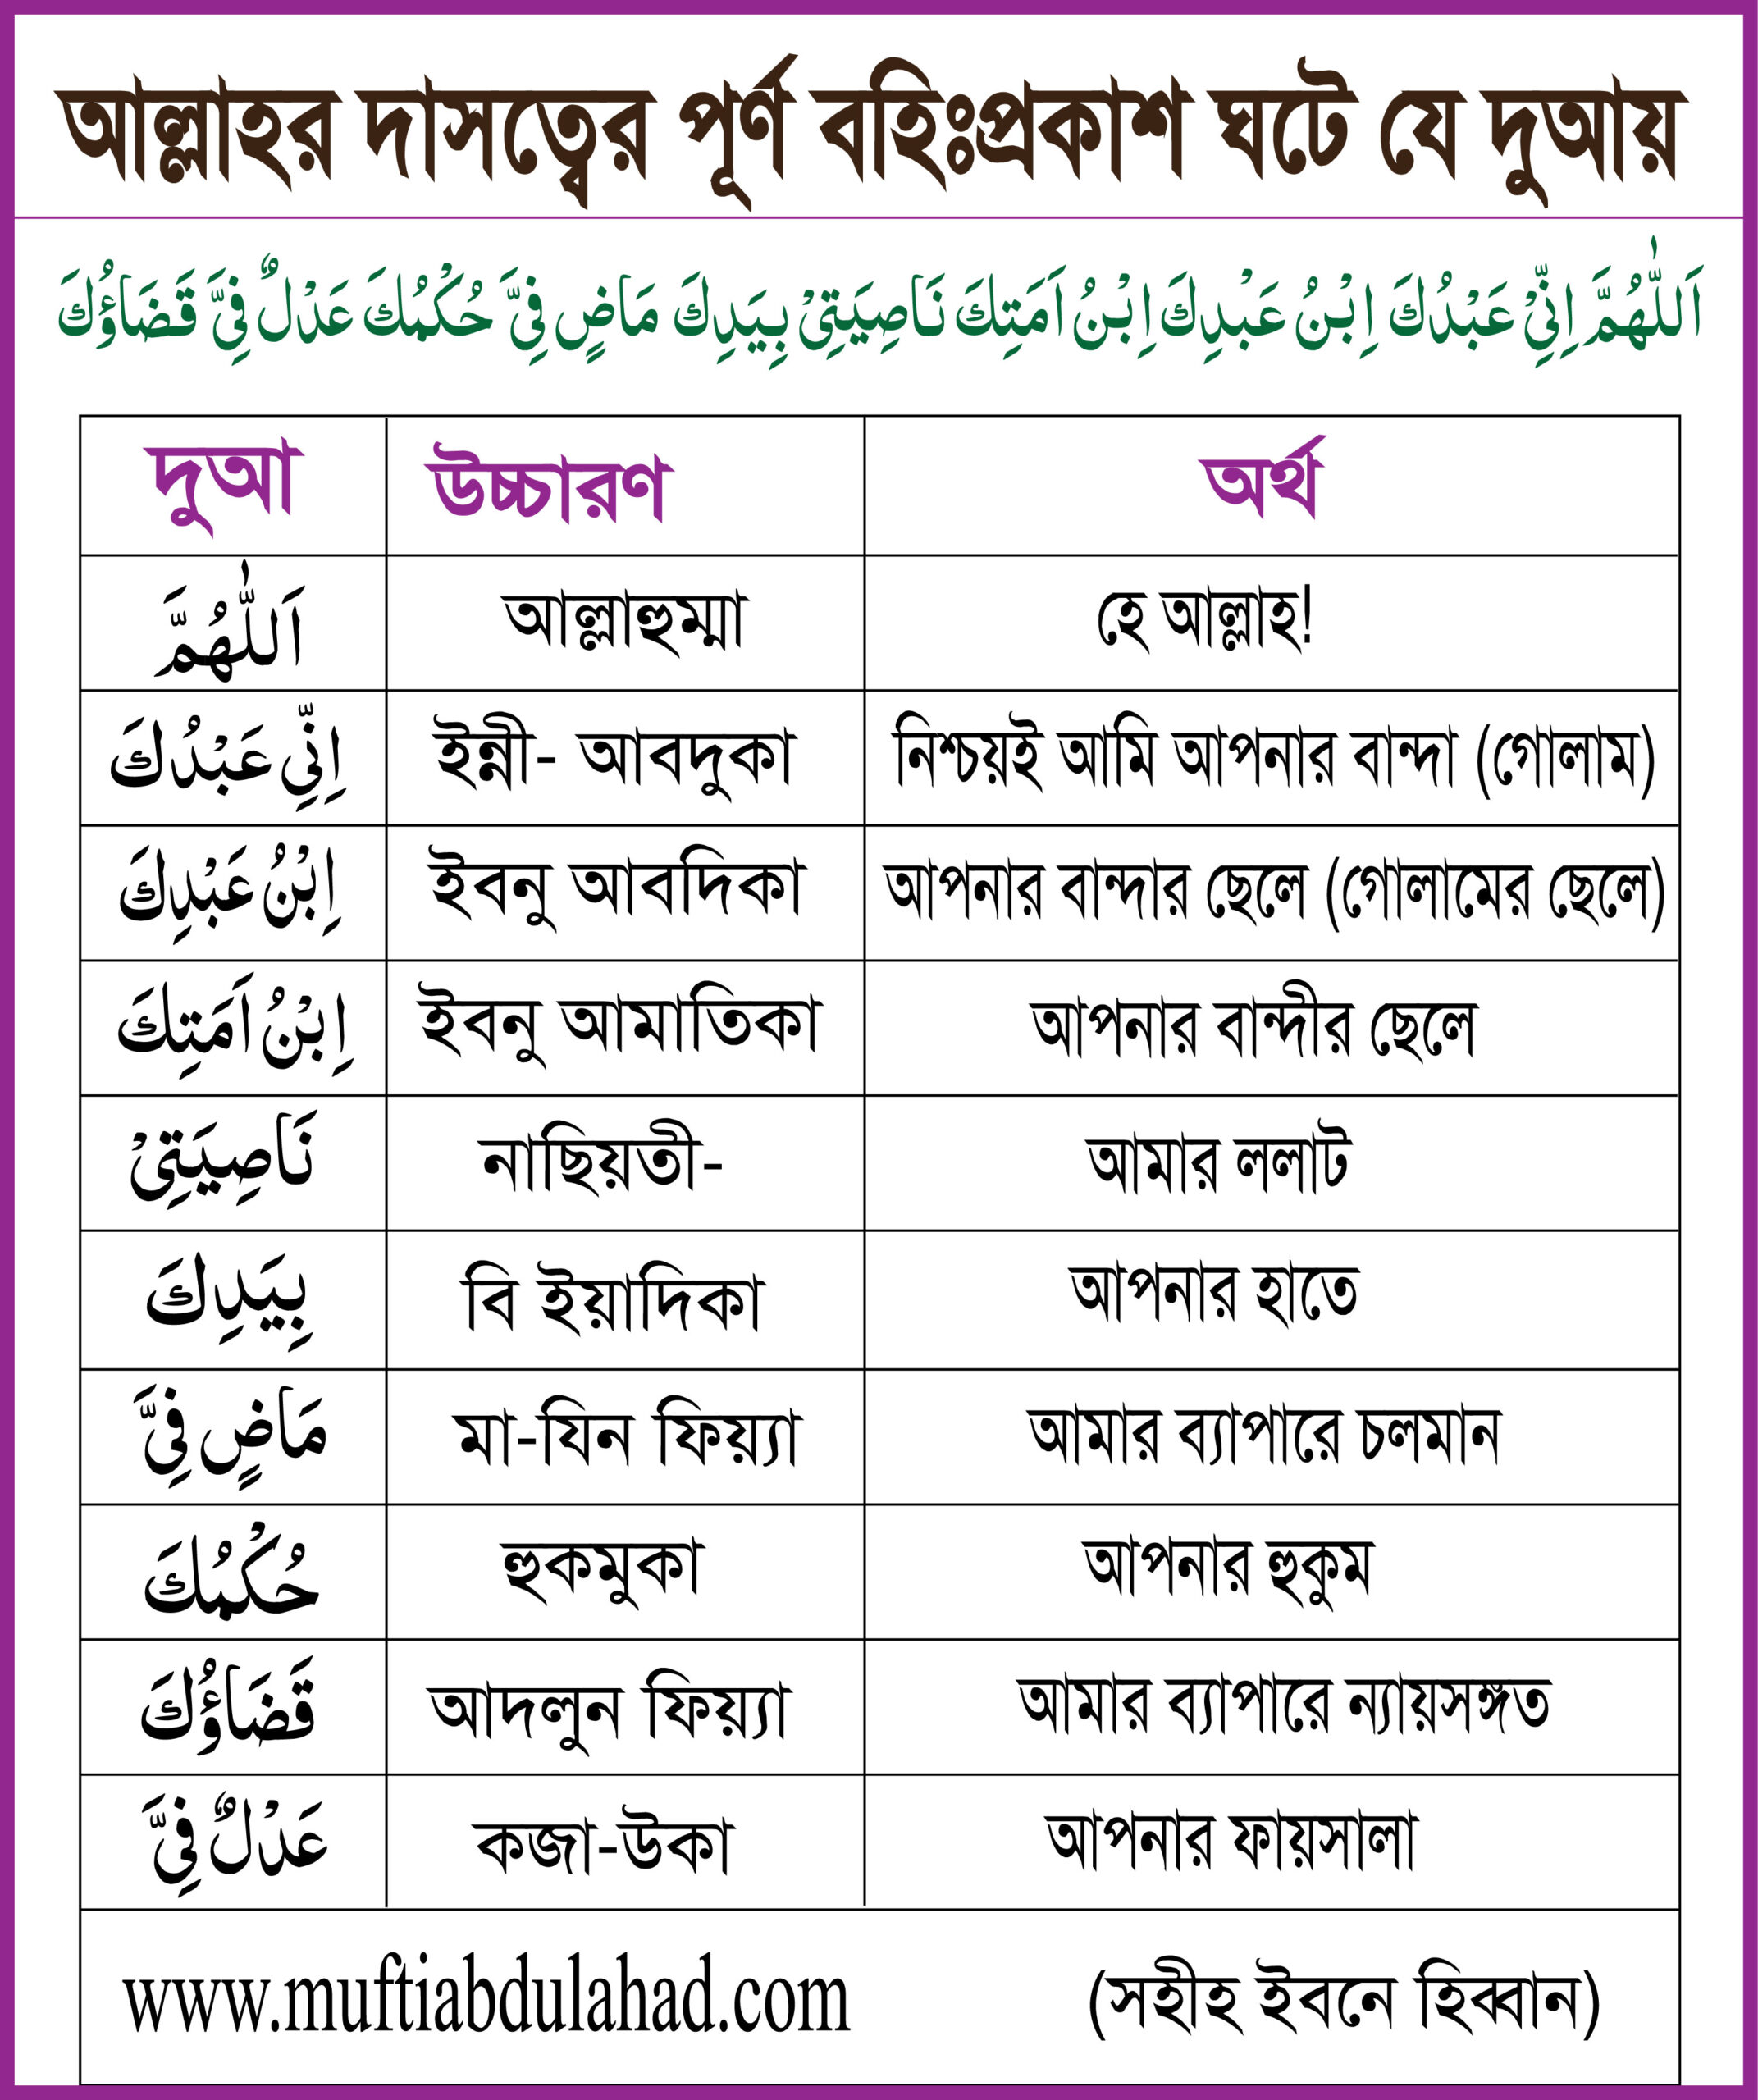 আল্লাহর দাসত্বের পূর্ণ বহিঃপ্রকাশ ঘটে যে দুআয়
اَللّٰهُمَّ اِنِّيْ عَبْدُكَ اِبْنُ عَبْدِكَ اِبْنُ اَمَتِكَ نَاصِيَتِيْ بِيَدِكَ مَاضٍ فِيَّ حُكْمُكَ عَدْلٌ فِيَّ قَضَاؤُكَ
দুআ উচ্চারণ অর্থ
اَللّٰهُمَّ আল্লাহুম্মা হে আল্লাহ!
اِنِّيْ عَبْدُكَ ইন্নী- আবদুকা নিশ্চয়ই আমি আপনার বান্দা (গোলাম)
اِبْنُ عَبْدِكَ ইবনু আবদিকা আপনার বান্দার ছেলে (গোলামের ছেলে)
اِبْنُ اَمَتِكَ ইবনু আমাতিকা আপনার বান্দীর ছেলে
نَاصِيَتِيْ নাছিয়তী- আমার ললাট
بِيَدِكَ বি ইয়াদিকা আপনার হাতে
مَاضٍ فِيَّ মা-যিন ফিয়্যা আমার ব্যাপারে চলমান
حُكْمُكَ হুকমুকা আপনার হুকুম
قَضَاؤُكَ আদলুন ফিয়্যা আমার ব্যাপারে ন্যায়সঙ্গত
عَدْلٌ فِيَّ কজা-উকা আপনার ফায়সালা
www.muftiabdulahad.com (সহীহ ইবনে হিব্বান)